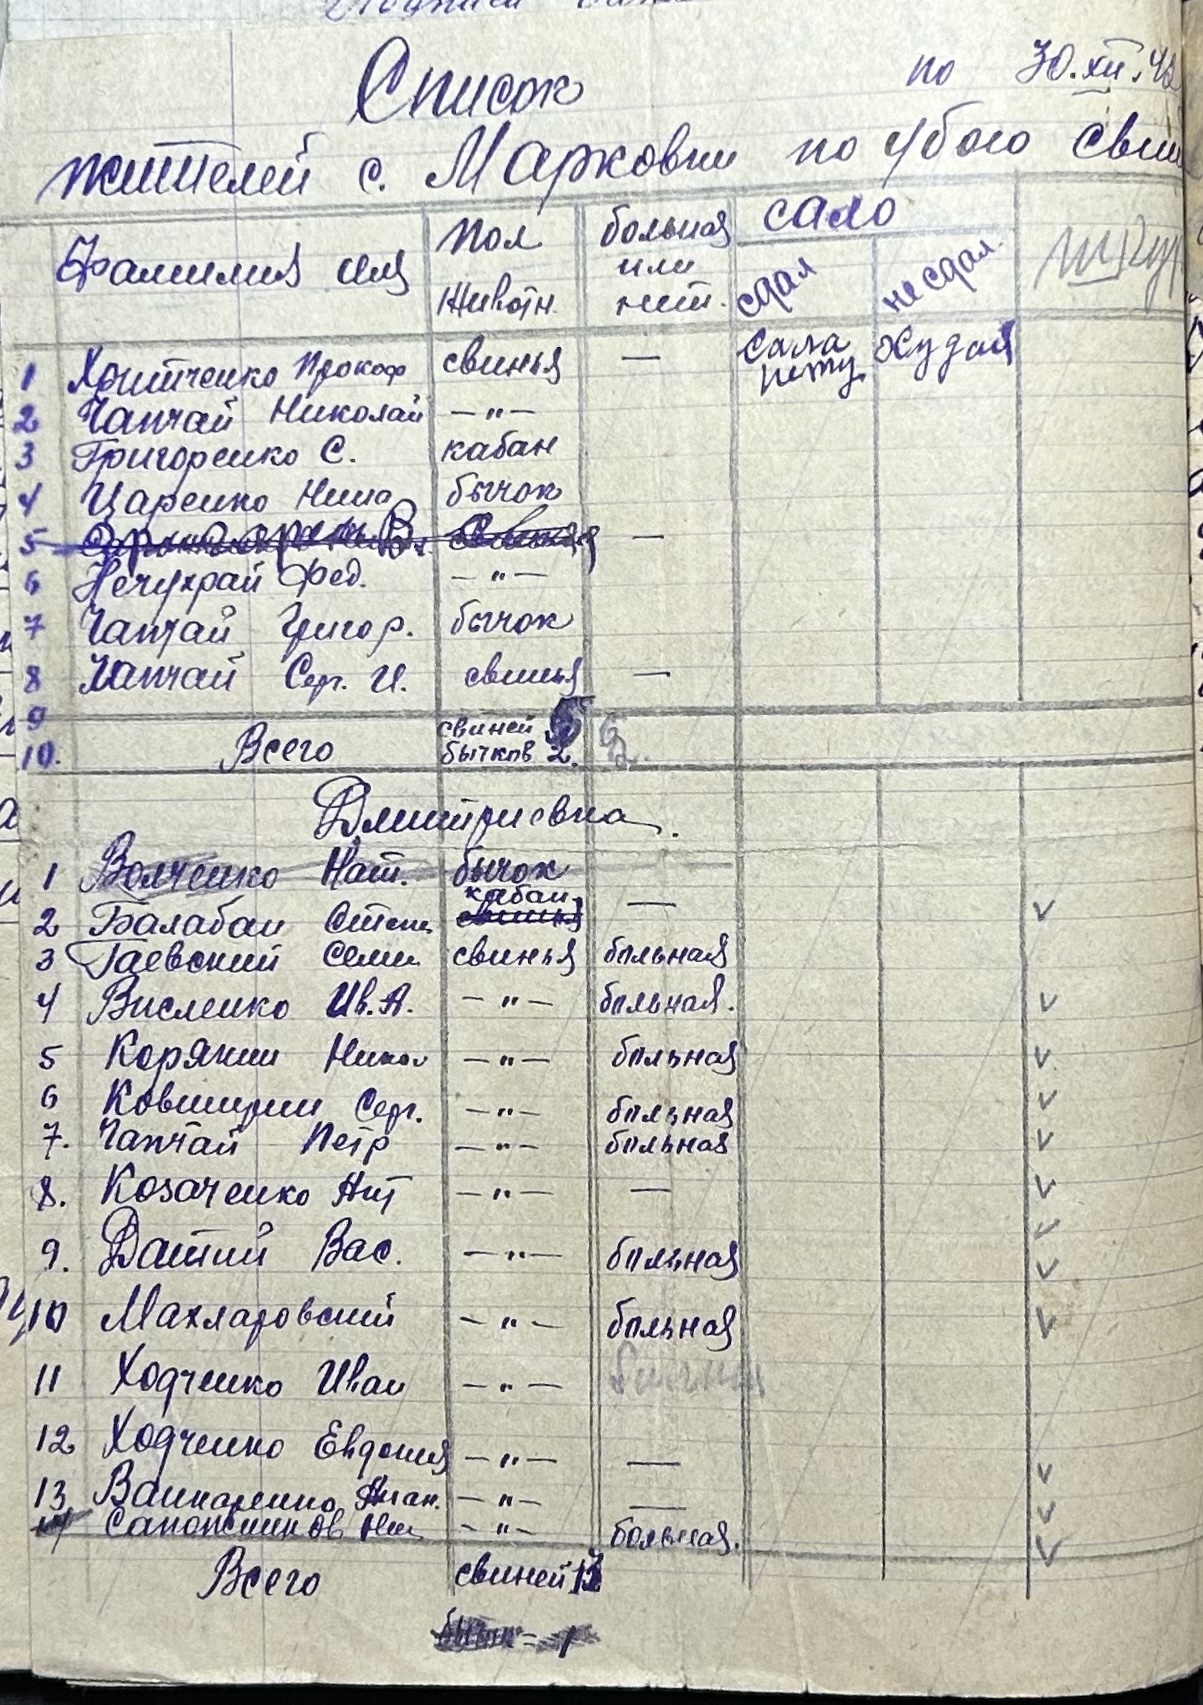 Список по 30.XII.42
жителей с. Марковки по убою свин
Фамилия имя Пол животн. больная или нет. сало сдал не сдал.
1 Хритченко Прокоф свинья — Сала нету Худая
2 Чапчай Николай —"—
3 Григоренко С. кабан
4 Царенко Нина бычок
5 —
6 Нечухрай Фед. —"—
7 Чапчай Григор. бычок
8 Чапчай Сер. И. свинья —
9 свиней 5
10. Всего бычков 2.
Дмитриевка.
1 Волченко Нат. бычок
2 Балабан Степ кабан свинья — v
3 Гаевский Семен свинья больная
4 Висленко Ив. А. —"— больная. v
5 Корякин Никол —"— больная v
6 Серг. —"— больная v
7. Чапчай Петр —"— больная v
8. Козаченко Ант —"— — v
9. Датий Вас. —"— больная v
10 Махларовский —"— больная v
11 Ходченко Иван —"—
12 Ходченко Евдокия —"— — v
13 —"— — v
14 Сапожников Ник —"— больная. v
Всего свиней 13
бычок = 1